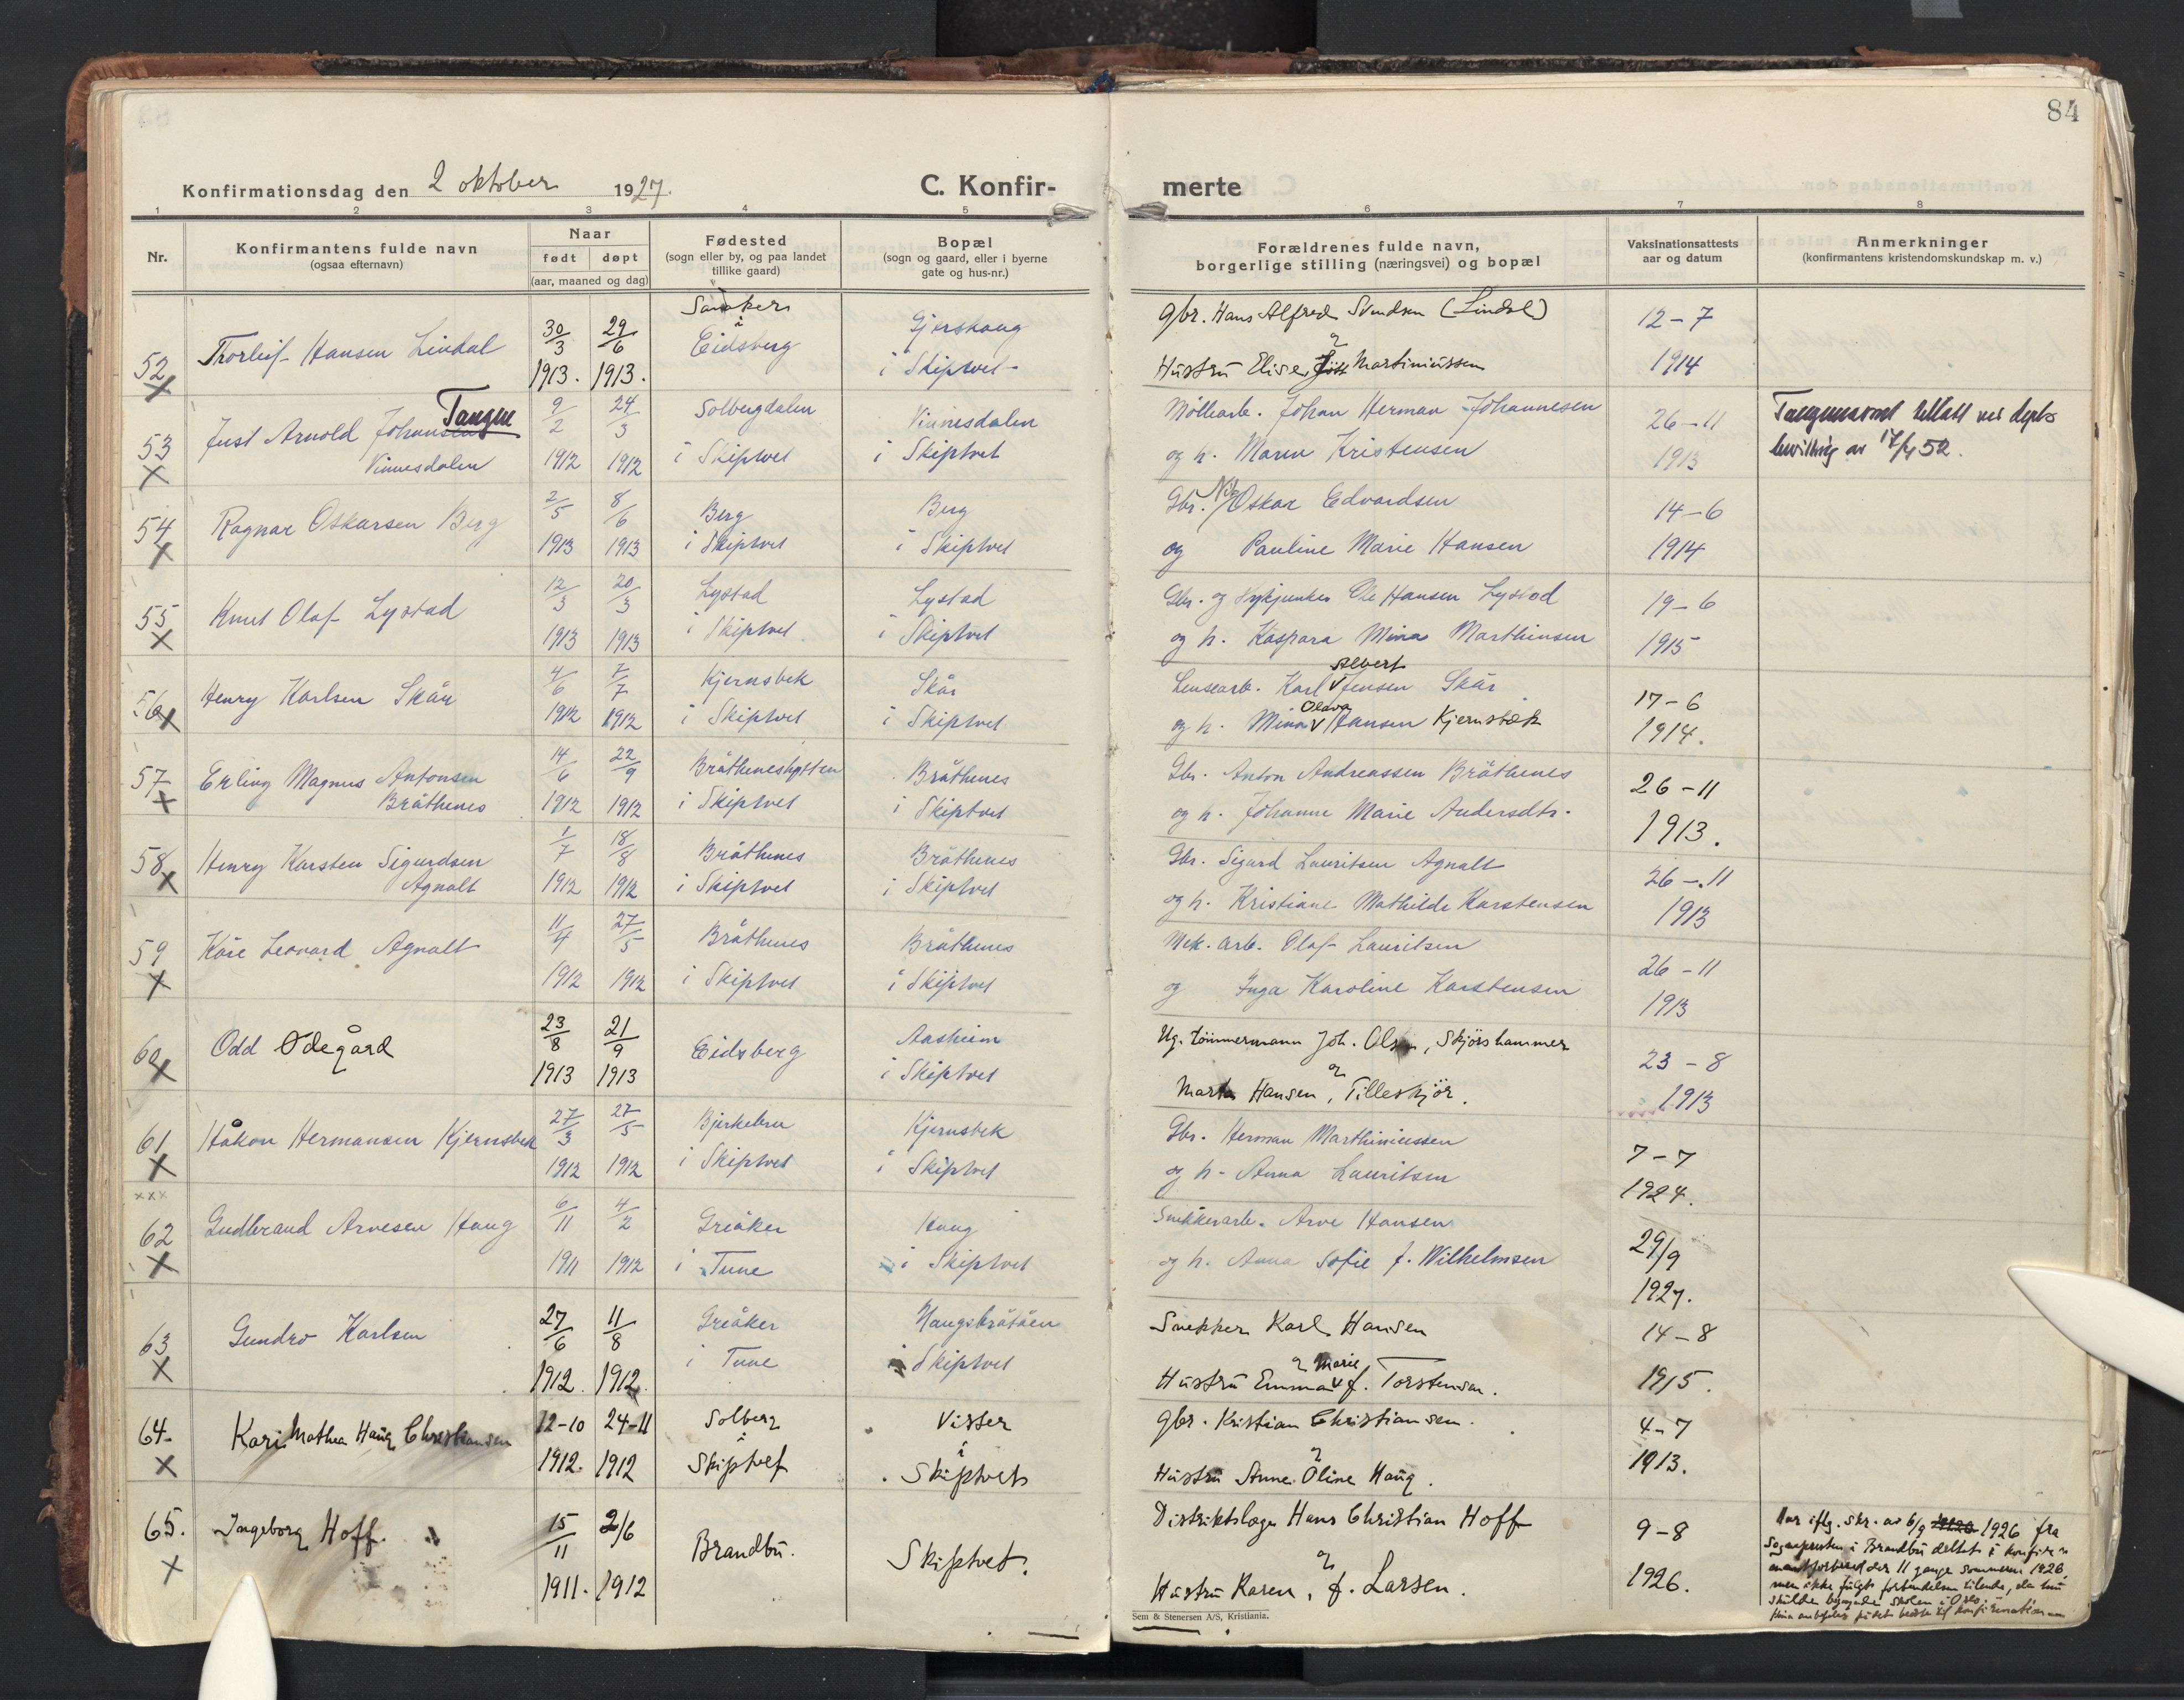 84
Konfirmationsdag den 2 oktober 1927.
C. Konfir-
merte
1 2 3 4 5 6 7 8
Nr.
Konfirmantens fulde navn
(ogsaa efternavn)
Naar
født døpt
(aar, maaned og dag)
Fødested
(sogn eller by, og paa landet
tillike gaard)
Bopæl
(sogn og gaard, eller i byerne
gate og hus-nr.)
Forældrenes fulde navn,
borgerlige stilling (næringsvei) og bopæl
Vaksinationsattests
aar og datum
Anmerkninger
(konfirmantens kristendomskundskap m. v.)
52 X Thorleif Hansen Lindal
30/3 1913. 29/6 1913.
i Eidsberg
i Skiptvet
gbr. Hans Alfred Svendsen (Lindal)
og
Hustru Elise født Martiniussen
12-7
1914
53 X Just Arnold Johansen Tangen
Vinnesdalen
9/2 1912 24/3 1912
Solbergdalen
i Skiptvet
Vinnesdalen
i Skiptvet
Möllearb. Johan Herman Johannesen
og h. Maren Kristensen
26-11
1913
Tangen tillatt ved dep.s
bevilling av 17/4 52.
54 X Ragnar Oskarsen Berg
2/5 1913 8/6 1913
Berg
i Skiptvet
Berg
i Skiptvet
Gbr. Nils Oskar Edvardsen
og Pauline Marie Hansen
14-6
1914
55 X Knut Olaf Lystad
12/3 1913 20/3 1913
Lystad
i Skiptvet
Lystad
i Skiptvet
Gbr. og Ole Hansen Lystad
og h. Kaspara Mina Marthinsen
19-6
1915
56 X Henry Karlsen Skår
4/6 1912 7/7 1912
Kjernsbek
i Skiptvet
Skår
i Skiptvet
Lensearb. Karl Albert Jensen Skår
og h. Mina Olava Hansen Kjernsbæk
17-6
1914.
57 X Erling Magnus Antonsen
Bråthenes
14/6 1912 22/9 1912
Bråtheneshytten
i Skiptvet
Bråthenes
i Skiptvet
Gbr. Anton Andreassen Bråthenes
og h. Johanne Marie Andersdtr.
26-11
1913.
58 X Henry Karsten Sigurdsen
Agnalt
1/7 1912 18/8 1912
Bråthenes
i Skiptvet
Bråthenes
i Skiptvet
Gbr. Sigurd Lauritsen Agnalt
og h. Kristiane Mathilde Karstensen
26-11
1913
59 X Kåre Leonard Agnalt
11/4 1912 27/5 1912
Bråthenes
i Skiptvet
Bråthenes
i Skiptvet
Mek. arb. Olaf Lauritsen
og Inga Karoline Karstensen
26-11
1913
60 X Odd Ødegård
23/8 1913 21/9 1913
Eidsberg
Aasheim
i Skiptvet
Ug. tömmermann Joh. Olsen, Skjörshammer
og
Marta Hansen, Tilleskjör.
23-8
1913
61 X Håkon Hermansen Kjernsbek
27/3 1912 27/5 1912
Bjerkebru
i Skiptvet
Kjernsbek
i Skiptvet
Gbr. Herman Marthiniussen
og h. Anna Lauritsen
7-7
1924.
xxx
62 X Gudbrand Arvesen Haug
6/11 1911 4/2 1912
Greåker
i Tune
Haug
i Skiptvet
Snekkerarb. Arve Hansen
og h. Anna Sofie f. Wilhelmsen
29/9
1927.
63 X Gundro Karlsen
27/6 1912. 11/8 1912.
Greåker
i Tune
Haugsbråtåen
i Skiptvet
Snekker Karl Hansen
og
Hustru Emma Marie f. Torstensen.
14-8
1915.
64. X Kari Mathea Haug Christiansen
12-10 1912. 24-11 1912
Solberg
i
Skiptvet
Vister
i
Skiptvet
gbr. Kristian Christiansen.
og
Hustru Anne Oline Haug.
4-7
1913.
65. X Ingeborg Hoff.
15/11 1911. 2/6 1912
Brandbu.
Skiptvet.
Distriktslæge Hans Christian Hoff
og
Hustru Karen, f. Larsen.
9-8
1926.
Har iflg. skr. av 6/9 1926 fra
Sognepresten i Brandbu deltat i konfir-
mantforberedelse 11 gange sommeren 1926,
men ikke fulgt forberedelsen tilende, da hun
skulde begynde skolen i Oslo.
Sem & Stenersen A/S, Kristiania.